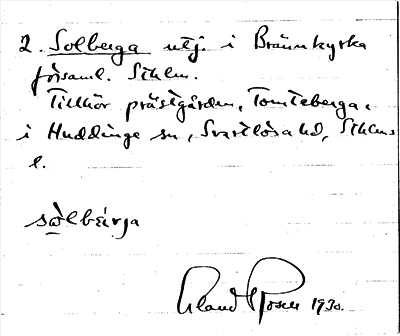 2. Solberga utj. i Brännkyrka
församl. Sthlm.
Tillhör prästgården, Tomteberga,
i Huddinge sn, Svartlösa hd, Sthlms
l.
sòlbèrja
1930.